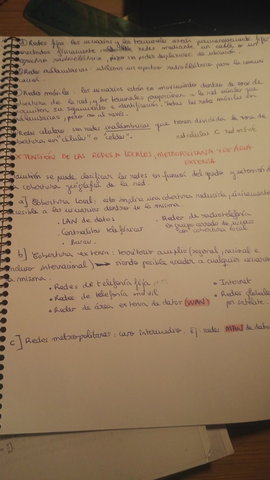 Redes fijas: los usuarios y los terminales están permanentemente
físicamente redes mediante un cable o un
espectro radioeléctrico, pero no puede desplazarse de ubicación.
Redes inalámbricas utilizan un espectro radioeléctrico para la comuni
Redes móviles: los usuarios están en movimiento dentro de zona de
cobertura de la red, y los terminales proporcionan a la red señales que
permiten su seguimiento e identificación. Todas las redes móviles son
inalámbricas, pero no al revés.
Redes celulares: son redes inalámbricas que tienen dividida la zona de
cobertura en "células" o "celdas".
EXTENSIÓN DE LAS REDES: LOCALES, METROPOLITANAS Y DE ÁREA
EXTENSA
También se puede clasificar las redes en función del grado y extensión de
la cobertura geográfica de la red.
a] Cobertura local: esto implica una cobertura reducida, permitiendo
servicio a los usuarios dentro de la misma.
• LAN de datos
• Centralitas telefónicas
• Redes de radiotelefonía
con cobertura local
b] Cobertura extensa: territorio amplio (regional, nacional e
incluso internacional) → siendo posible acceder a cualquier
la misma.
• Redes de telefonía fija
• Redes de telefonía móvil
• Redes de área extensa de datos (WAN)
• Internet
• Redes
por satélite.
c] Redes metropolitanas: caso intermedio. Ej: redes MAN de datos